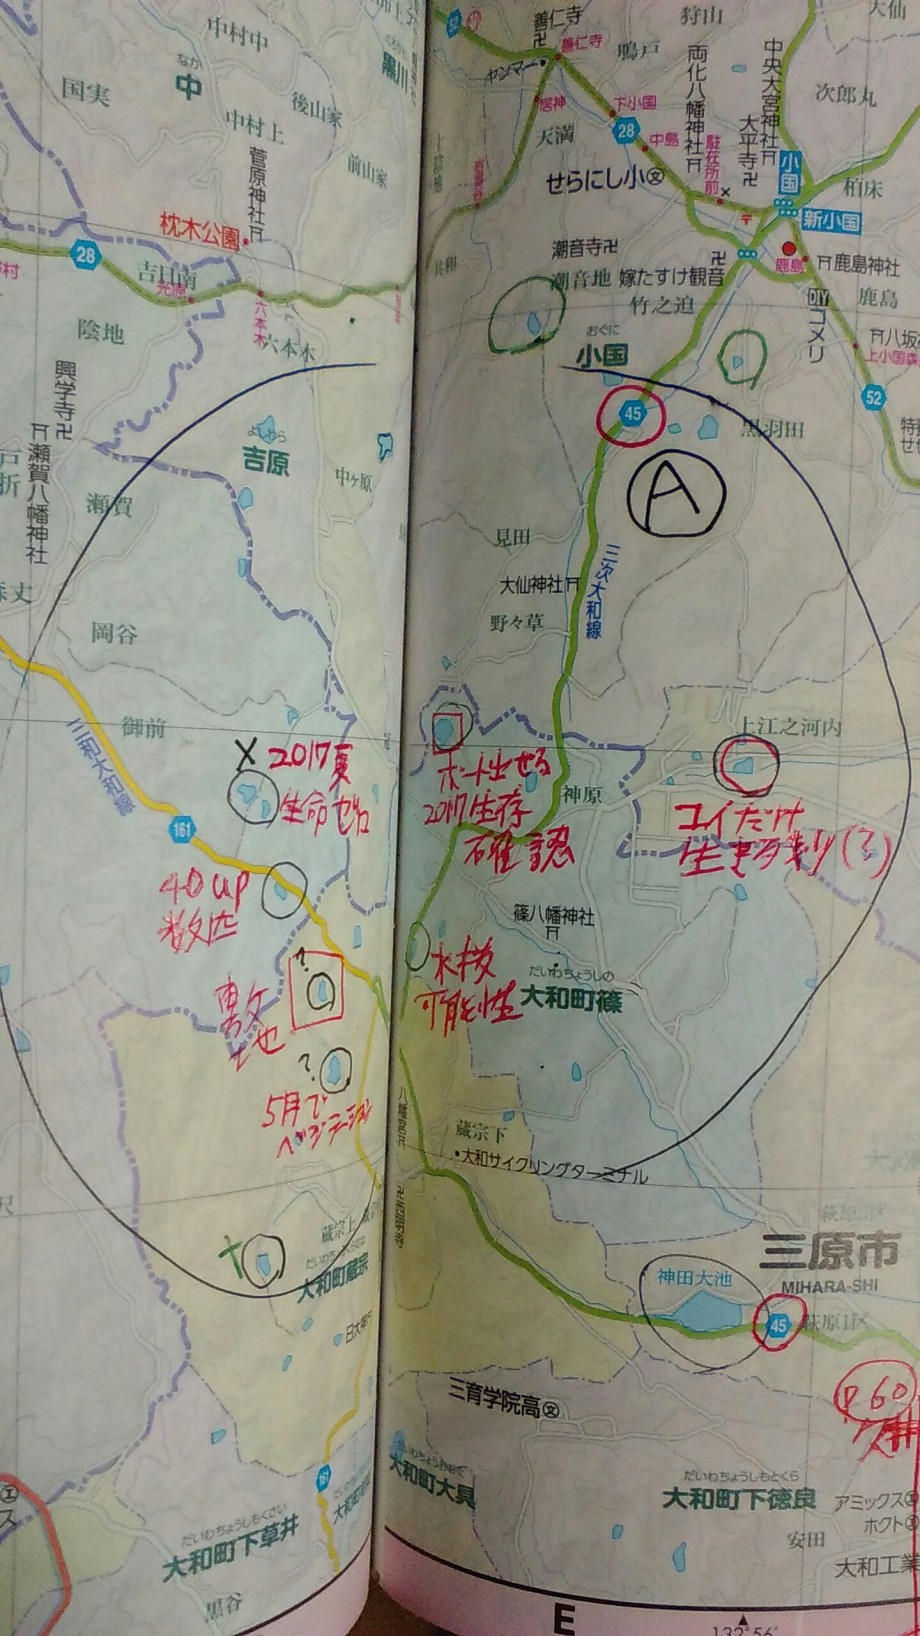 中村中
黒川
くろがわ
なか
中
国実
後山家
中村上
前山家
菅原神社
枕木公園
28
吉田南
光原
六本木
六本木
陰地
興学寺
瀬賀八幡神社
よしわら
吉原
中ヶ原
瀬賀
岡谷
御前
三和大和線
161
X 2017夏
生命ゼロ
40up
数匹
?
?
5月で
ベジテーション
蔵宗上
大和町蔵宗
161
だいわちょうしもくさい
大和町下草井
黒谷
善仁寺
善仁寺
ヤンマー
居神
狩山
大仙
鳴戸
両化八幡神社
中央大宮神社
大平寺
次郎丸
下小国
天満
28
中島
駐在所前
せらにし小
文
小国
柏床
新小国
潮音寺
潮音地
嫁たすけ観音
鹿島
鹿島神社
鹿島
竹之迫
DIY
コメリ
八坂
上小国
おぐに
小国
52
45
黒羽田
A
見田
三次大和線
大仙神社
野々草
上江之河内
ボート出せる
2017生存
確認
神原
コイだけ
生き残り(?)
篠八幡神社
水抜
可能性
だいわちょうしの
大和町篠
八幡宮
蔵宗下
大和サイクリングターミナル
萩原
三原市
MIHARA-SHI
神田大池
45
萩原1区
三育学院高
文
P60
久井
だいわちょうおおぐ
大和町大具
だいわちょうしもとくら
大和町下徳良
アミックス
ホクト
安田
大和工業
E
132°56′